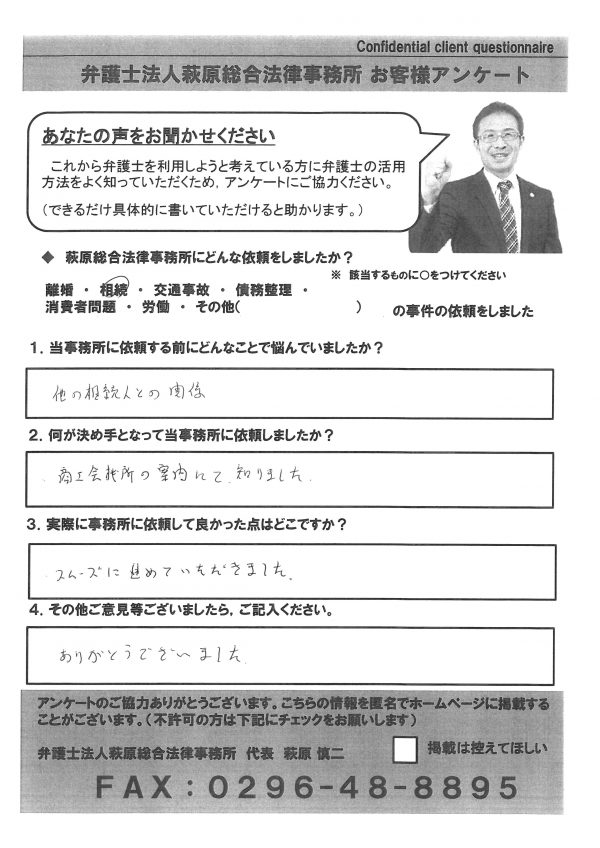 Confidential client questionnaire
弁護士法人萩原総合法律事務所 お客様アンケート
あなたの声をお聞かせください
これから弁護士を利用しようと考えている方に弁護士の活用
方法をよく知っていただくため，アンケートにご協力ください。
（できるだけ具体的に書いていただけると助かります。）
◆ 萩原総合法律事務所にどんな依頼をしましたか？
※ 該当するものに○をつけてください
離婚 ・ 相続 ・ 交通事故 ・ 債務整理 ・
消費者問題 ・ 労働 ・ その他( ) の事件の依頼をしました
１．当事務所に依頼する前にどんなことで悩んでいましたか？
他の相続人との関係
２．何が決め手となって当事務所に依頼しましたか？
商工会議所の案内にて、知りました。
３．実際に事務所に依頼して良かった点はどこですか？
スムーズに進めていただきました。
４．その他ご意見等ございましたら，ご記入ください。
ありがとうございました
アンケートのご協力ありがとうございます。こちらの情報を匿名でホームページに掲載する
ことがございます。（不許可の方は下記にチェックをお願いします）
弁護士法人萩原総合法律事務所 代表 萩原 慎二
掲載は控えてほしい
ＦＡＸ：０２９６－４８－８８９５